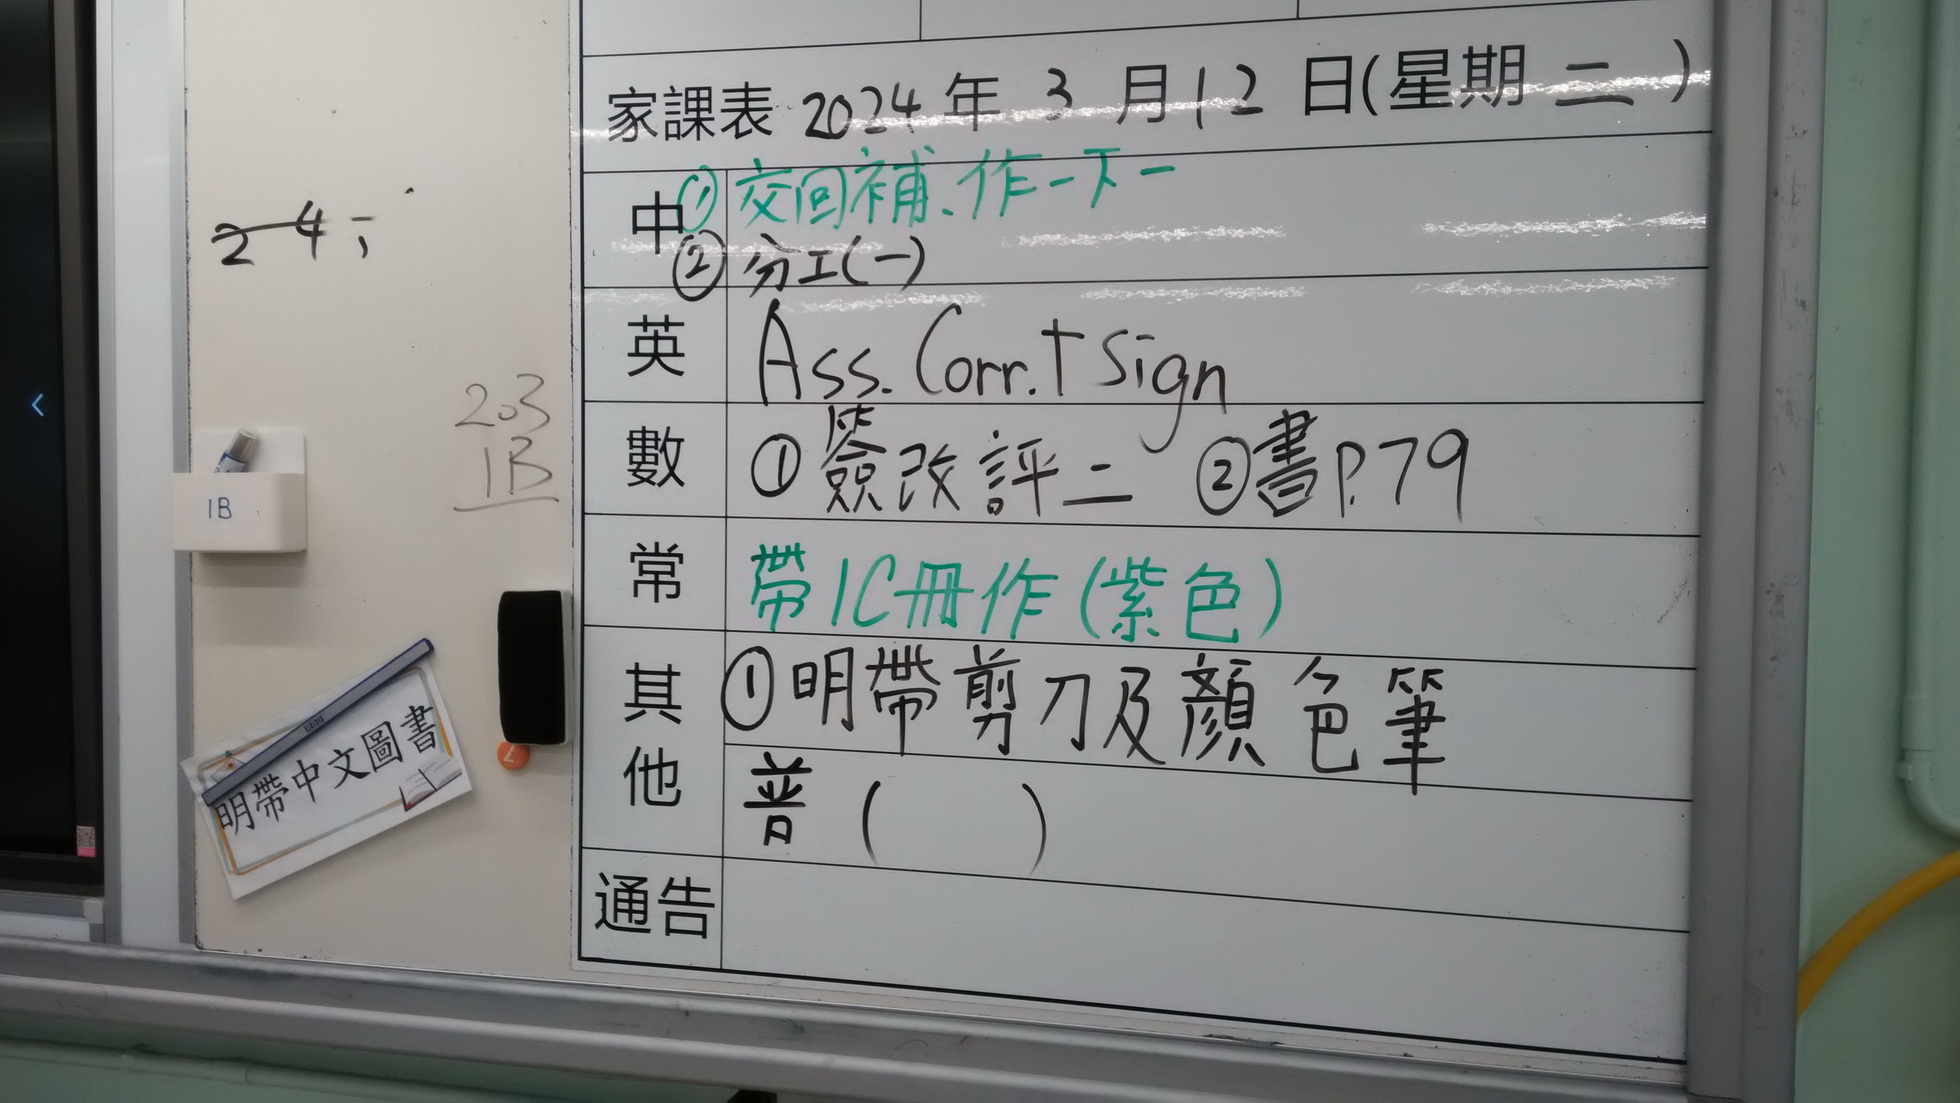 家課表 2024 年 3 月 12 日(星期 二)
中 ① 交回補、作一下一
② 分工(一)
英 Ass. Corr. + Sign
數 ① 簽改評二 ② 書P.79
常 帶1C冊作(紫色)
其他 ① 明帶剪刀及顏色筆
普 ( )
通告
2 4
203
1B
1B
明帶中文圖書